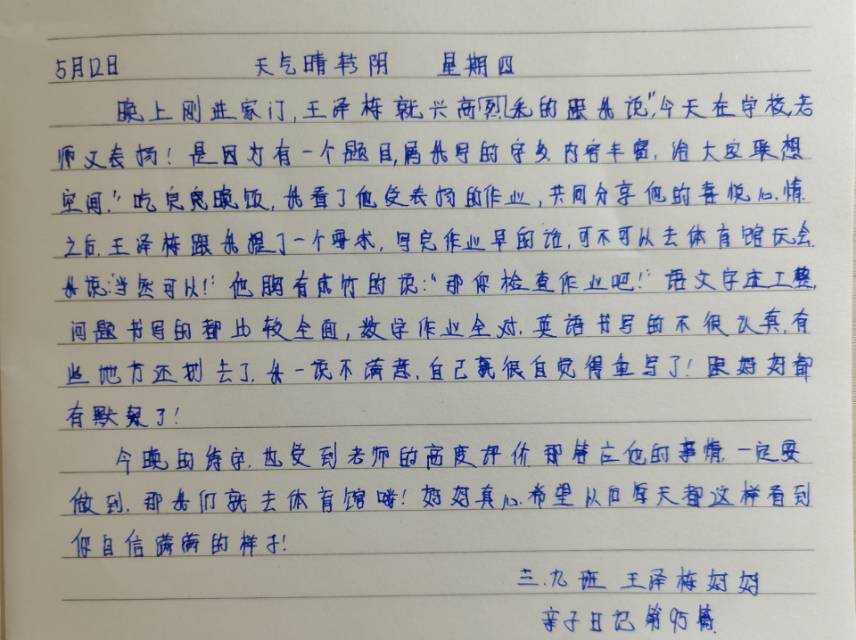 5月12日 天气晴转阴 星期四
晚上刚进家门,王泽梅就兴高烈采的跟我说,"今天在学校,老
师又表扬!是因为有一个题目,属我写的字多,内容丰富,给大家联想
空间."吃完晚饭,我看了他受表扬的作业,共同分享他的喜悦心情.
之后,王泽梅跟我提了一个要求,写完作业早的话,可不可以去体育馆玩会
我说:当然可以!"他胸有成竹的说:"那你检查作业吧!"语文字迹工整,
问题书写的都比较全面,数学作业全对.英语书写的不很认真,有
些地方还划去了.我一说不满意,自己就很自觉得重写了!跟妈妈都
有默契了!
今晚的练字.也受到老师的高度评价.那答应他的事情,一定要
做到.那我们就去体育馆喽!妈妈真心希望从后每天都这样看到
你自信满满的样子!
三.九班 王泽梅妈妈
亲子日记第95篇